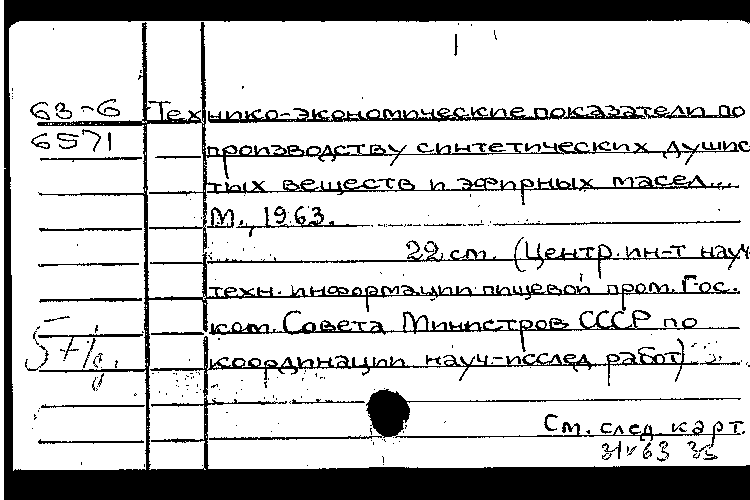 63-6 Технико-экономические показатели по
6571 производству синтетических душис
тых веществ и эфирных масел...
М., 1963.
22 ст. (Центр. ин-т науч
техн. информации пищевой пром. Гос.
ком. Совета Министров СССР по
координации науч-исслед работ)
См. след карт.